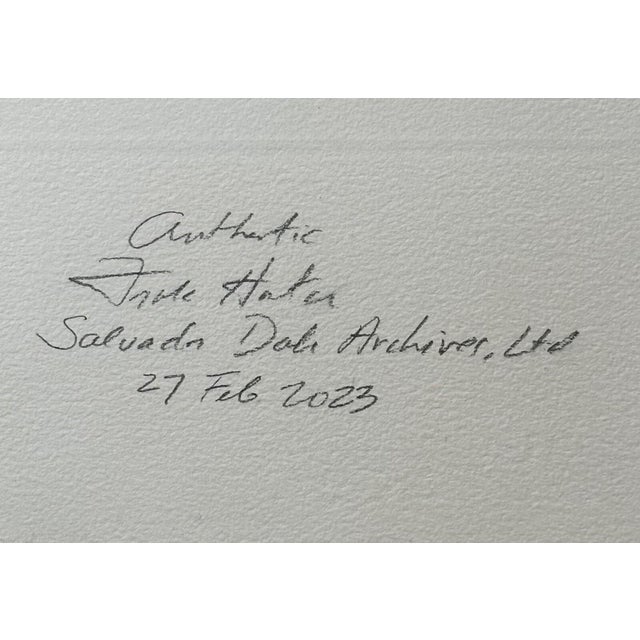 Authentic
Frank Hunter
Salvador Dali Archives, Ltd
27 Feb 2023